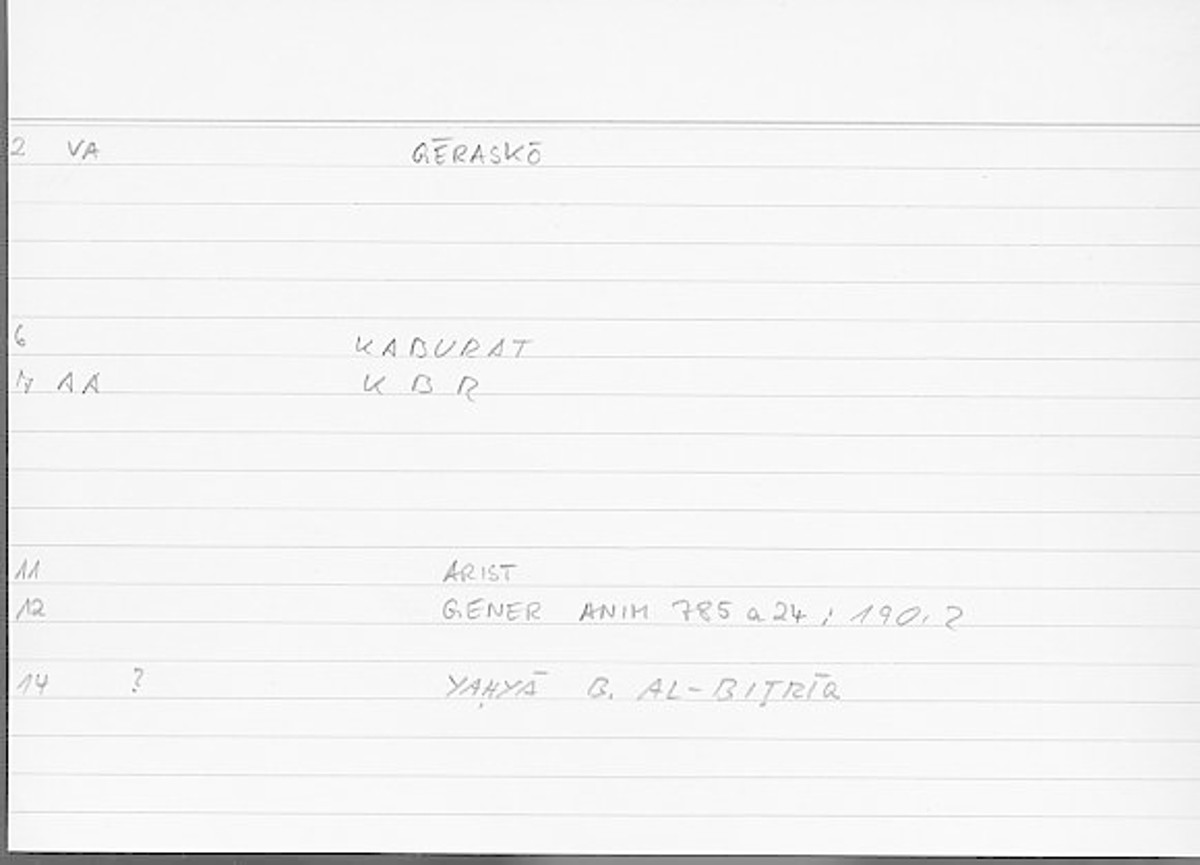 2 VA GĒRASKŌ
6 KABURAT
7 AA KBR
11 ARIST
12 GENER ANIM 785 a 24 ; 190.2
14 ? YAḤYĀ B. AL-BIṬRĪQ